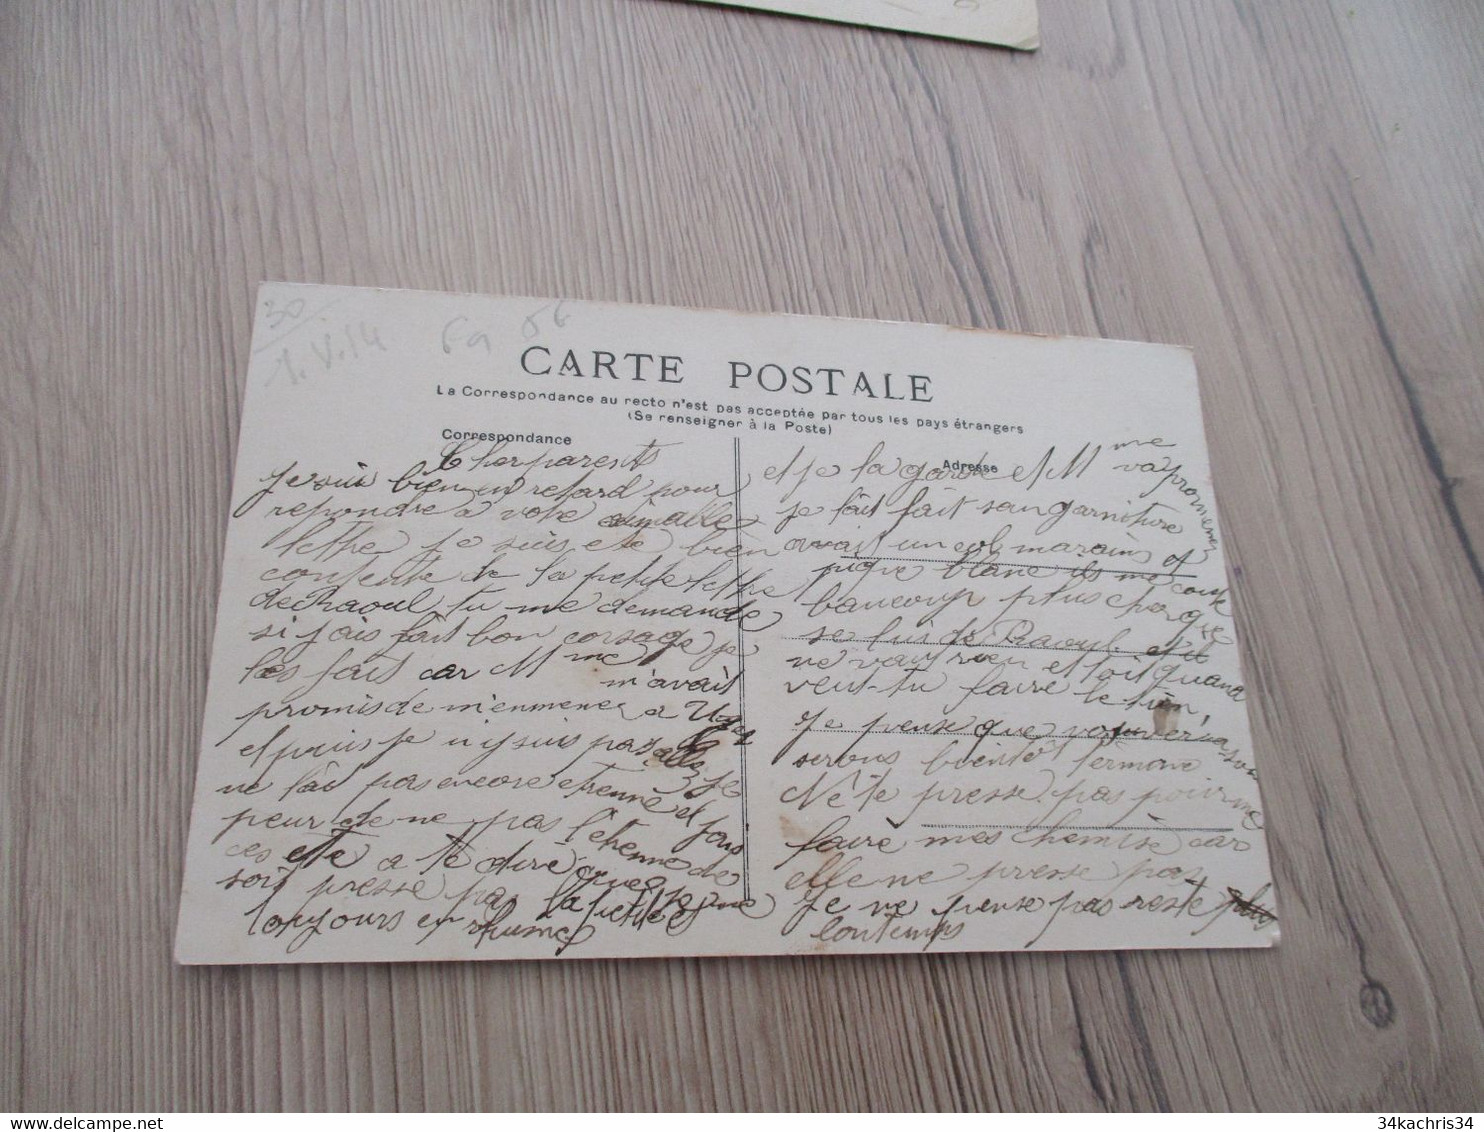 30
1.V.14
CARTE POSTALE
La Correspondance au recto n'est pas acceptée par tous les pays étrangers
(Se renseigner à la Poste)
Correspondance
Adresse
Cher parents
Je suis bien en retard pour
repondre a votre aimable
lettre je suis ete bien
contente de la petite lettre
de Raoul tu me demande
si jais fait bon corsage je
les fait car Mme m'avait
promis de m'enmene a Uzes
et puis je n'y suis pas allé je
ne l'ai pas encore etrenné et jais
peur de ne pas l'etrenné de
ces ete a te dire que je ne
soit presse pas la petite
toujours en rhume
et je la garde et Mme va promener
je lait fait san garniture
avait un col marain et
pique blanc ils me coute
baucoup plus cher que
se lui de Raoul et il
ne vaut rien et toit quand
veut-tu faire le tien
Je pense que vous
serons bientot
Ne te presse pas pour me
faire mes chemise car
elle ne presse pas
Je ne pense pas reste plus
lontemps
34kachris34